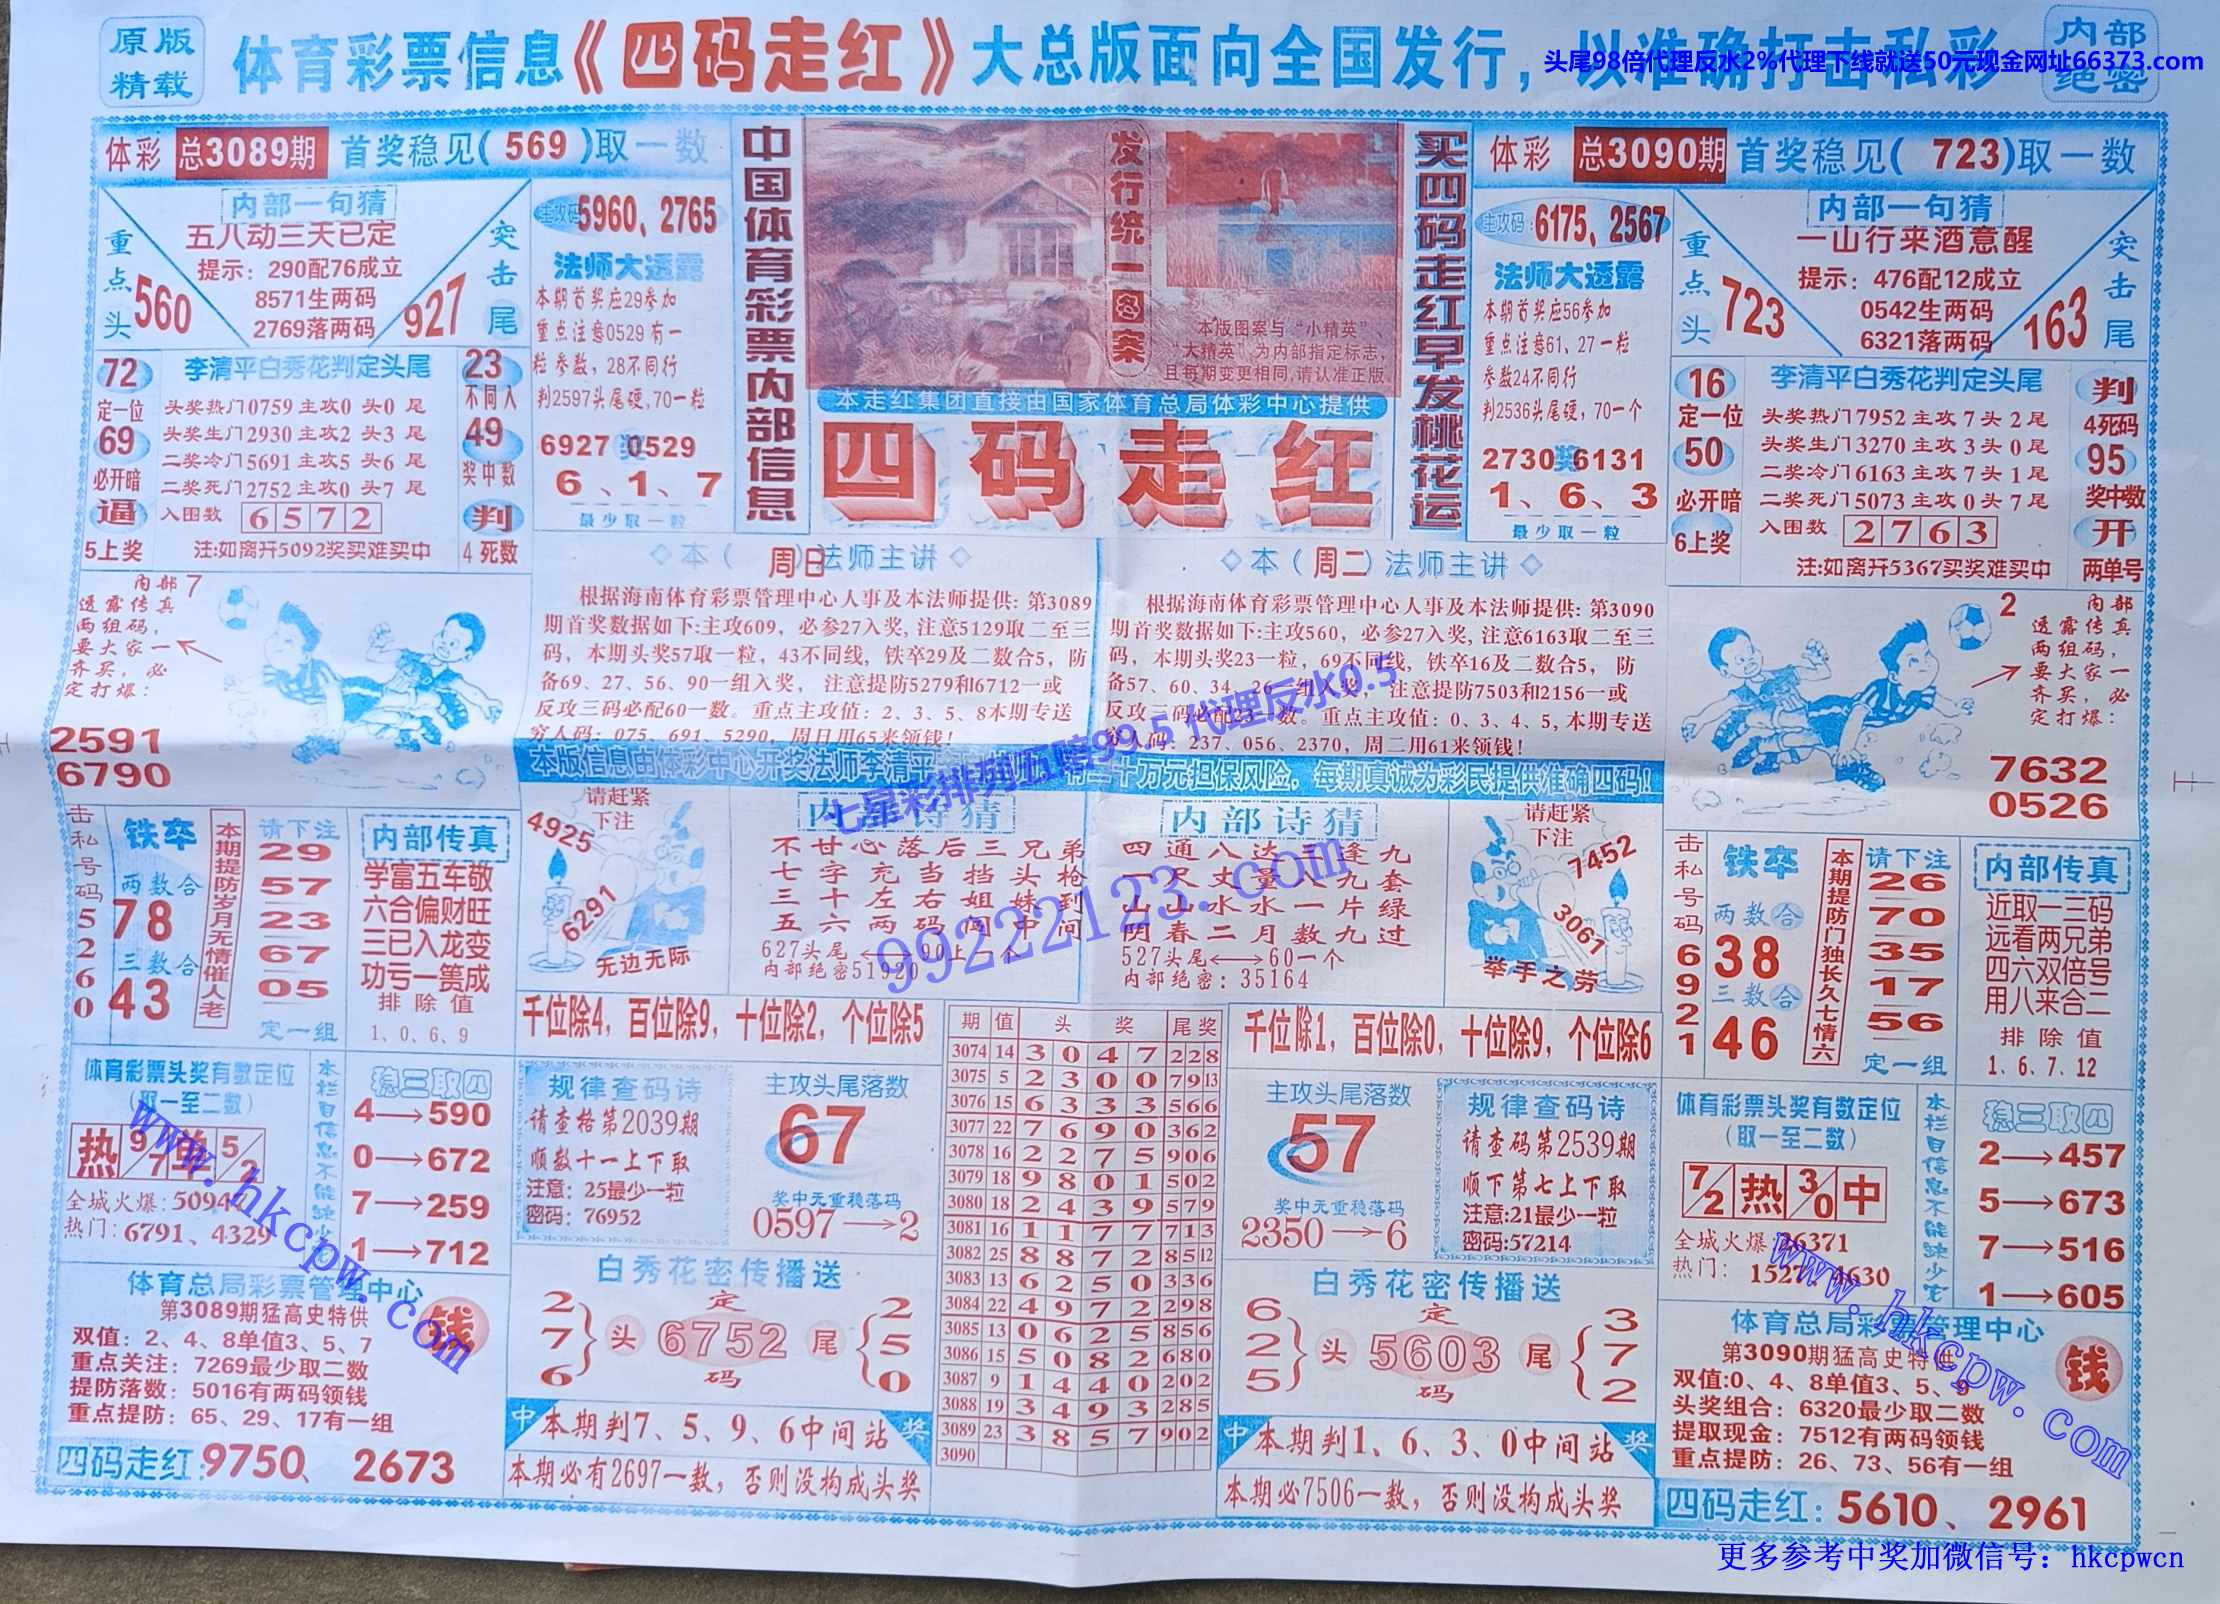 原版
精载
体育彩票信息《四码走红》大总版面向全国发行，以准确打击私彩
内部
绝密
头尾98倍代理反水2%代理下线就送50元现金网址66373.com
体彩 总3089期 首奖稳见(569)取一数
内部一句猜
五八动三天已定
提示：290配76成立
8571生两码
2769落两码
重点头
560
突击尾
927
主攻码 5960、2765
法师大透露
本期首奖应29参加
重点注意0529有一
粒参数，28不同行
判2597头尾硬,70一粒
6927奖0529
6、1、7
最少取一粒
72
定一位
69
必开暗
逼
5上奖
李清平白秀花判定头尾
头奖热门0759主攻0头0尾
头奖生门2930主攻2头3尾
二奖冷门5691主攻5头6尾
二奖死门2752主攻0头7尾
入围数 6572
注:如离开5092奖买难买中
23
不同入
49
奖中数
判
4死数
中国体育彩票内部信息
发行统一图案
本版图案与“小精英”、
“大精英”为内部指定标志,
且每期变更相同,请认准正版
本走红集团直接由国家体育总局体彩中心提供
四码走红
买四码走红早发桃花运
体彩 总3090期 首奖稳见(723)取一数
主攻码：6175、2567
法师大透露
本期首奖应56参加
重点注意61、27一粒
参数24不同行
判2536头尾硬，70一个
2730奖6131
1、6、3
最少取一粒
内部一句猜
一山行来酒意醒
提示：476配12成立
0542生两码
6321落两码
重点头
723
突击尾
163
16
定一位
50
必开暗
6上奖
李清平白秀花判定头尾
头奖热门7952主攻7头2尾
头奖生门3270主攻3头0尾
二奖冷门6163主攻7头1尾
二奖死门5073主攻0头7尾
入围数 2763
注:如离开5367买奖难买中
判
4死码
95
奖中数
开
两单号
内部 7
透露传真
两组码，
要大家一
齐买，必
定打爆：
2591
6790
◇本（周日）法师主讲◇
根据海南体育彩票管理中心人事及本法师提供：第3089
期首奖数据如下:主攻609，必参27入奖,注意5129取二至三
码，本期头奖57取一粒，43不同线，铁卒29及二数合5，防
备69、27、56、90一组入奖，注意提防5279和6712一或
反攻三码必配60一数。重点主攻值：2、3、5、8本期专送
穷人码：075、691、5290，周日用65来领钱！
◇本（周二）法师主讲◇
根据海南体育彩票管理中心人事及本法师提供：第3090
期首奖数据如下:主攻560，必参27入奖,注意6163取二至三
码，本期头奖23一粒，69不同线，铁卒16及二数合5，防
备57、60、34、26一组入奖，注意提防7503和2156一或
反攻三码必配23一数。重点主攻值：0、3、4、5,本期专送
穷人码：237、056、2370，周二用61来领钱！
2 内部
透露传真
两组码，
要大家一
齐买，必
定打爆：
7632
0526
本版信息由体彩中心开奖法师李清平
十万元担保风险，每期真诚为彩民提供准确四码！
七星彩排列五赔99.5 代理反水0.5
99222123.com
击私号码5260
铁卒
两数合
78
三数合
43
本期提防岁月无情催人老
请下注
29
57
23
67
05
定一组
内部传真
学富五车敬
六合偏财旺
三已入龙变
功亏一篑成
排除值
1、0、6、9
请赶紧
下注
4925
6291
无边无际
内部诗猜
不甘心落后三兄弟
七字充当挡头枪
三十左右姐妹到
五六两码闯中间
627头尾⟷90上一个
内部绝密51920
内部诗猜
四通八达三逢九
一尺丈量八九套
山山水水一片绿
阴春二月数九过
527头尾⟷60一个
内部绝密：35164
请赶紧
下注
7452
3061
举手之劳
击私号码6921
铁卒
两数合
38
三数合
46
本期提防门独长久七情六
请下注
26
70
35
17
56
定一组
内部传真
近取一三码
远看两兄弟
四六双倍号
用八来合二
排除值
1、6、7、12
千位除4，百位除9，十位除2，个位除5
千位除1，百位除0，十位除9，个位除6
体育彩票头奖有数定位
(取一至二数)
热 9/7 单 5/2
全城火爆:5094
热门:6791、4329
稳三取四
4→590
0→672
7→259
1→712
规律查码诗
请查格第2039期
顺数十一上下取
注意：25最少一粒
密码：76952
主攻头尾落数
67
奖中无重稳落码
0597→2
期 值 头奖 尾奖
3074 14 3 0 4 7 2 2 8
3075 5 2 3 0 0 7 9 13
3076 15 6 3 3 3 5 6 6
3077 22 7 6 9 0 3 6 2
3078 16 2 2 7 5 9 0 6
3079 18 9 8 0 1 5 0 2
3080 18 2 4 3 9 5 7 9
3081 16 1 1 7 7 7 1 3
3082 25 8 8 7 2 8 5 12
3083 13 6 2 5 0 3 3 6
3084 22 4 9 7 2 2 9 8
3085 13 0 6 2 5 8 5 6
3086 15 5 0 8 2 6 8 0
3087 9 1 4 4 0 2 0 2
3088 19 3 4 9 3 2 8 5
3089 23 3 8 5 7 9 0 2
3090
主攻头尾落数
57
奖中无重稳落码
2350→6
规律查码诗
请查码第2539期
顺下第七上下取
注意:21最少一粒
密码:57214
体育彩票头奖有数定位
(取一至二数)
7/2 热 3/0 中
全城火爆 26371
热门： 1527 4630
本栏目信息不能缺少它
稳三取四
2→457
5→673
7→516
1→605
体育总局彩票管理中心
第3089期猛高史特供
钱
双值：2、4、8单值3、5、7
重点关注：7269最少取二数
提防落数：5016有两码领钱
重点提防：65、29、17有一组
四码走红:9750、2673
白秀花密传播送
2
7
6
头
定
6752
码
尾
2
5
0
中 本期判7、5、9、6中间站 奖
本期必有2697一数，否则没构成头奖
白秀花密传播送
6
2
5
头
定
5603
码
尾
3
7
2
中 本期判1、6、3、0中间站 奖
本期必7506一数，否则没构成头奖
体育总局彩票管理中心
第3090期猛高史特供
钱
双值:0、4、8单值3、5、9
头奖组合：6320最少取二数
提取现金：7512有两码领钱
重点提防：26、73、56有一组
四码走红：5610、2961
www.hkcpw.com
www.hkcpw.com
更多参考中奖加微信号：hkcpwcn